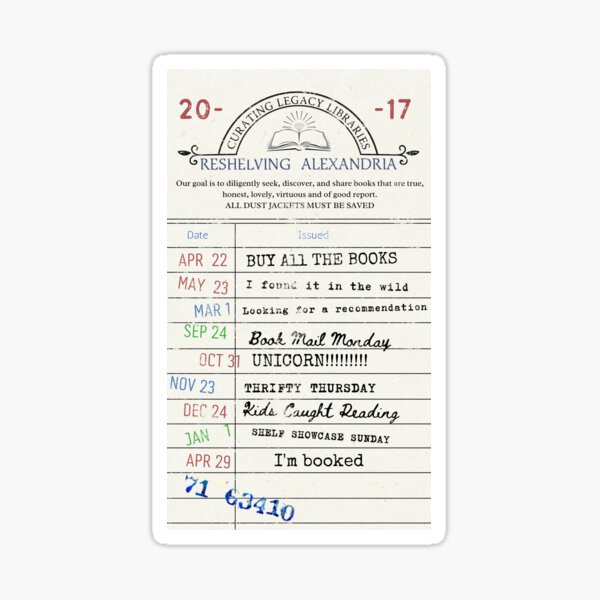 20- -17
CURATING LEGACY LIBRARIES
RESHELVING ALEXANDRIA
Our goal is to diligently seek, discover, and share books that are true,
honest, lovely, virtuous and of good report.
ALL DUST JACKETS MUST BE SAVED
Date Issued
APR 22 BUY All THE BOOKS
MAY 23 I found it in the wild
MAR 1 Looking for a recommendation
SEP 24 Book Mail Monday
OCT 31 UNICORN!!!!!!!!!
NOV 23 THRIFTY THURSDAY
DEC 24 Kids Caught Reading
JAN 1 SHELF SHOWCASE SUNDAY
APR 29 I'm booked
71 63410